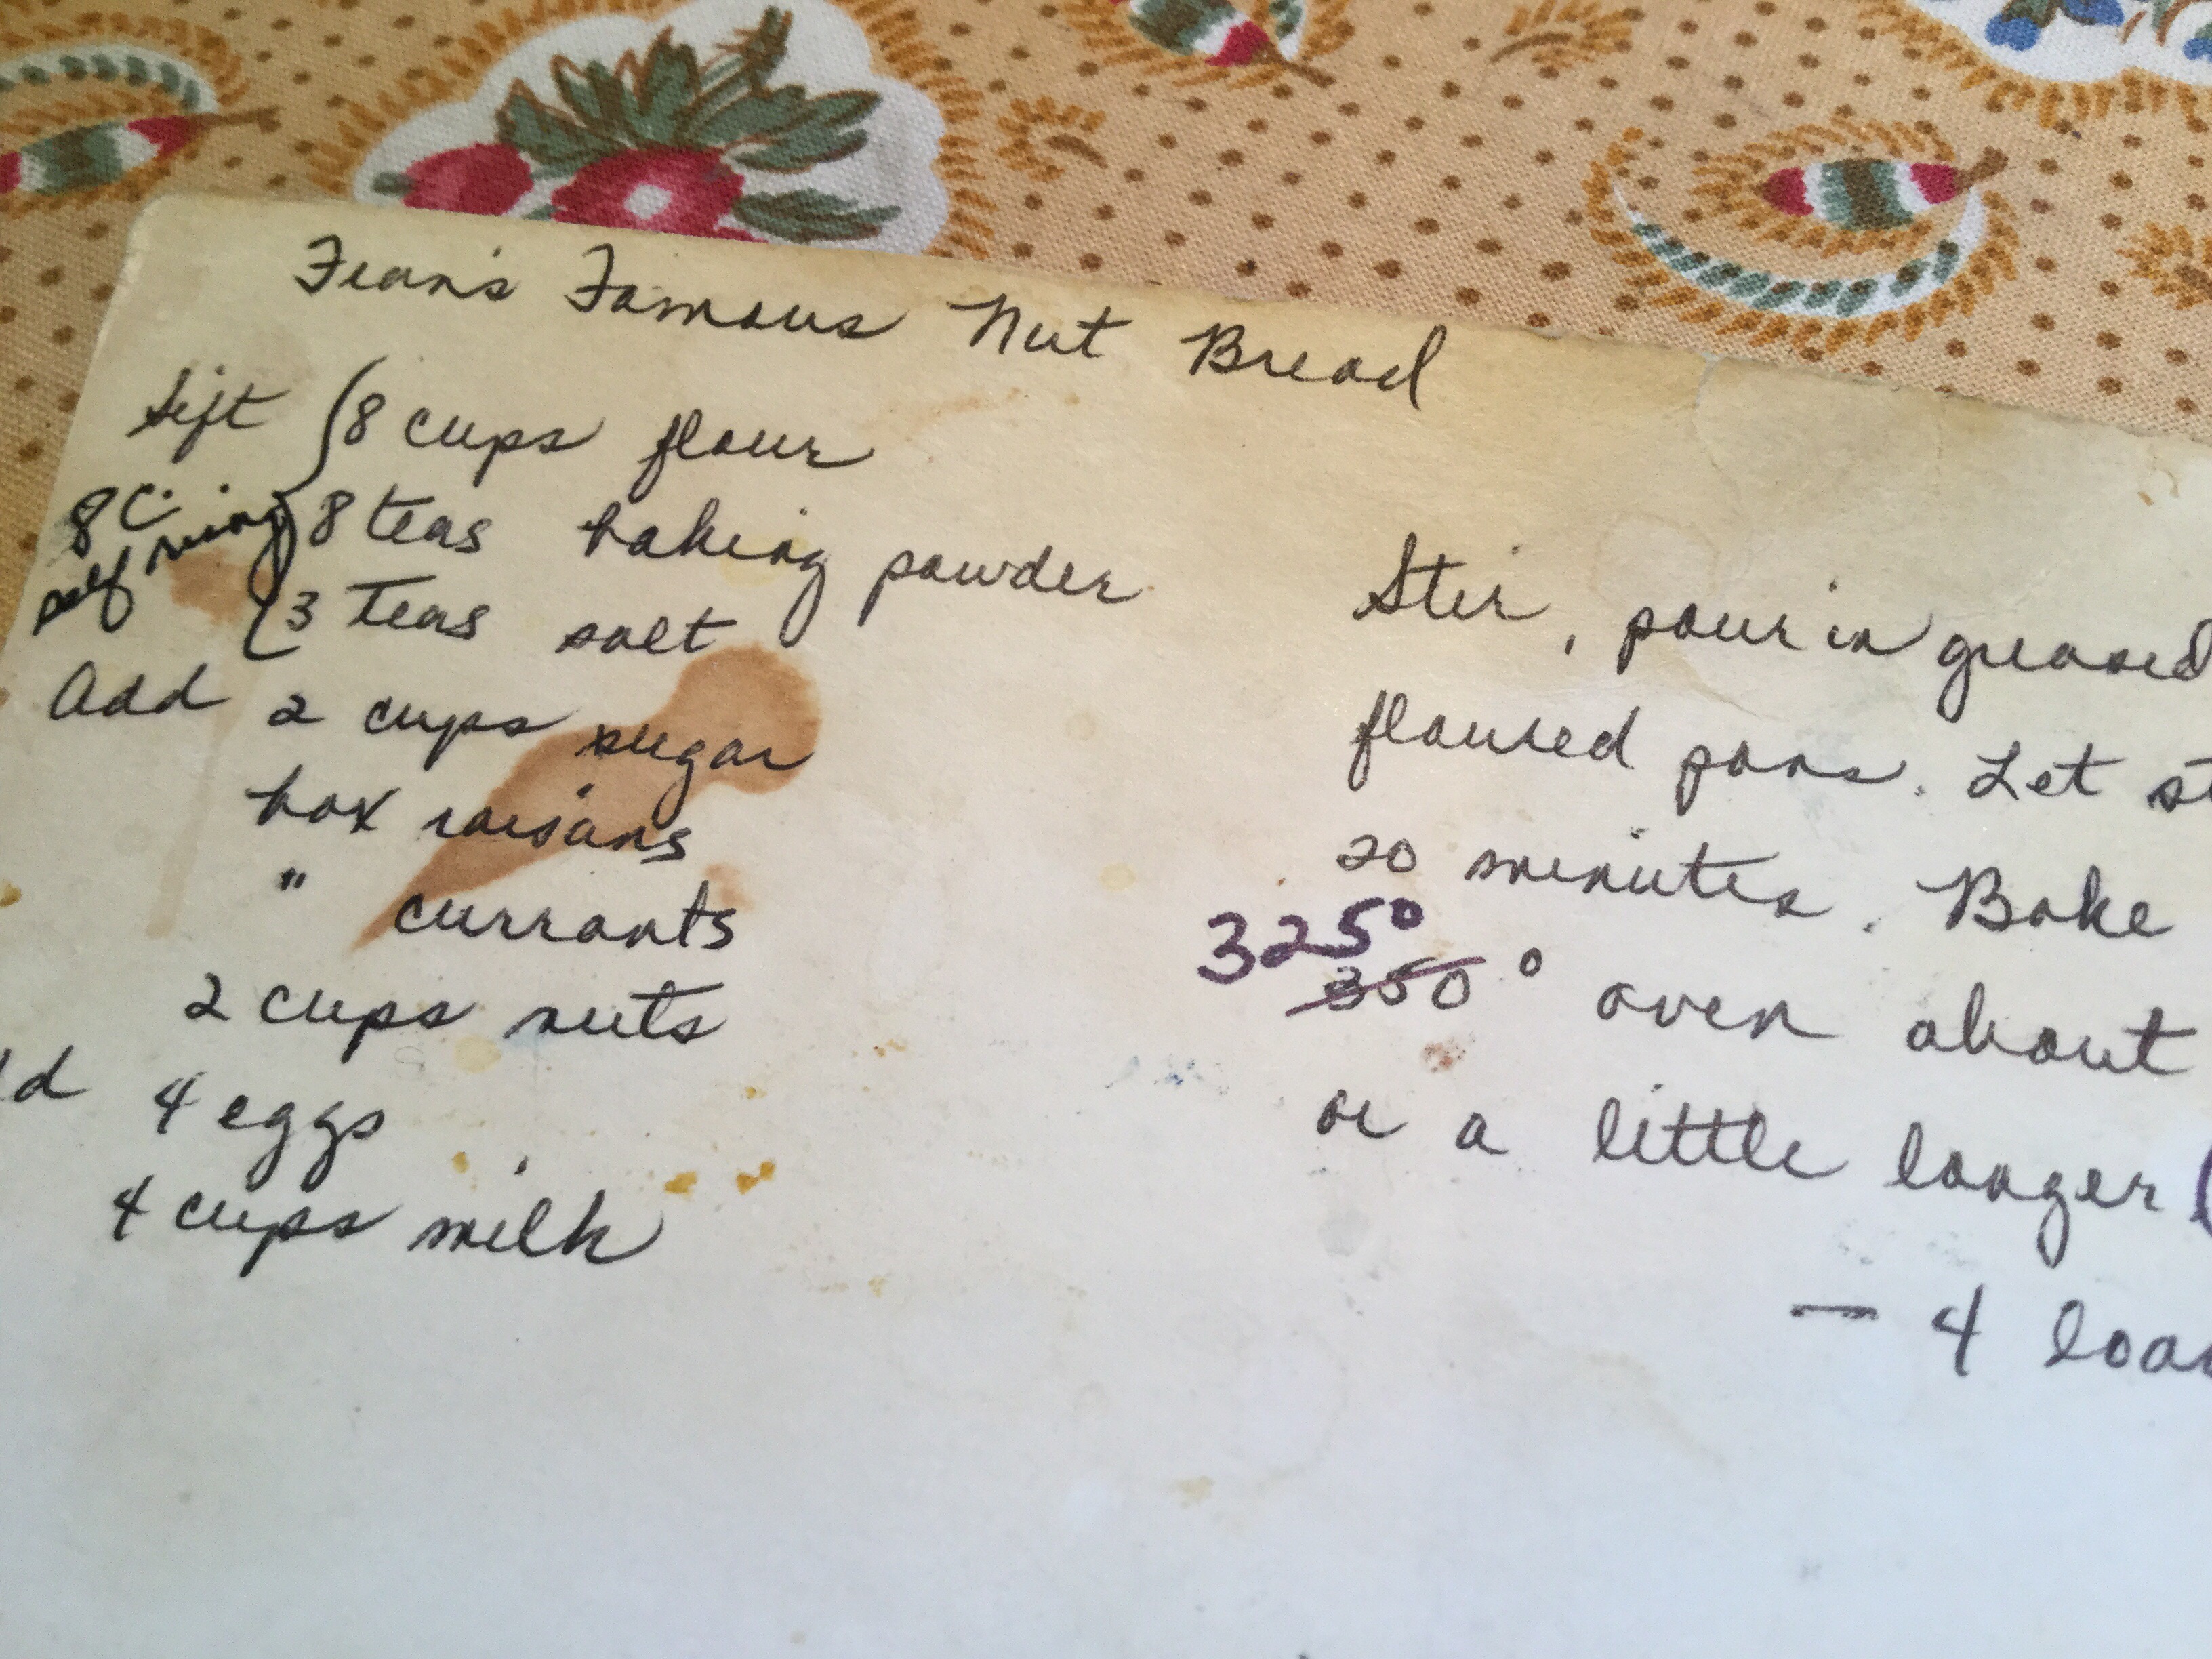 Fran's Famous Nut Bread
Sift 8 cups flour
8 c. self rising
8 teas baking powder
3 teas salt
Add 2 cups sugar
box raisins
" currants
2 cups nuts
4 eggs
4 cups milk
Stir, pour in greased
floured pans. Let st
20 minutes. Bake
325°
350° oven about
or a little longer (
— 4 loa